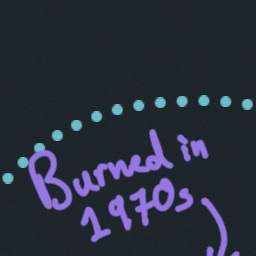 Burned in
1970s